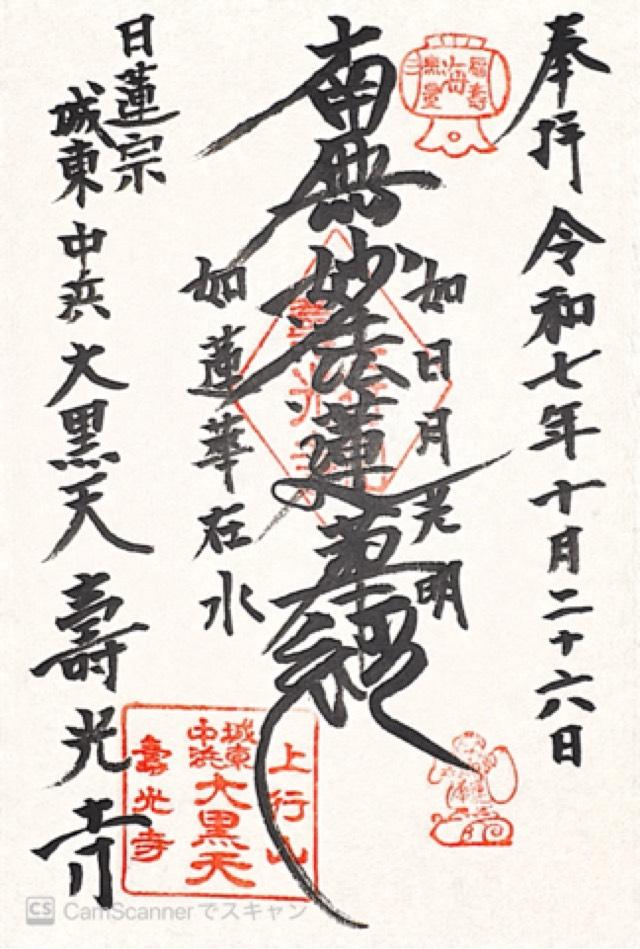 奉拝 令和七年十月二十六日
如日月光明
南無妙法蓮華経
如蓮華在水
日蓮宗
城東中浜大黒天 壽光寺
上行山
城東
中浜
大黒天
壽光寺
CS CamScannerでスキャン